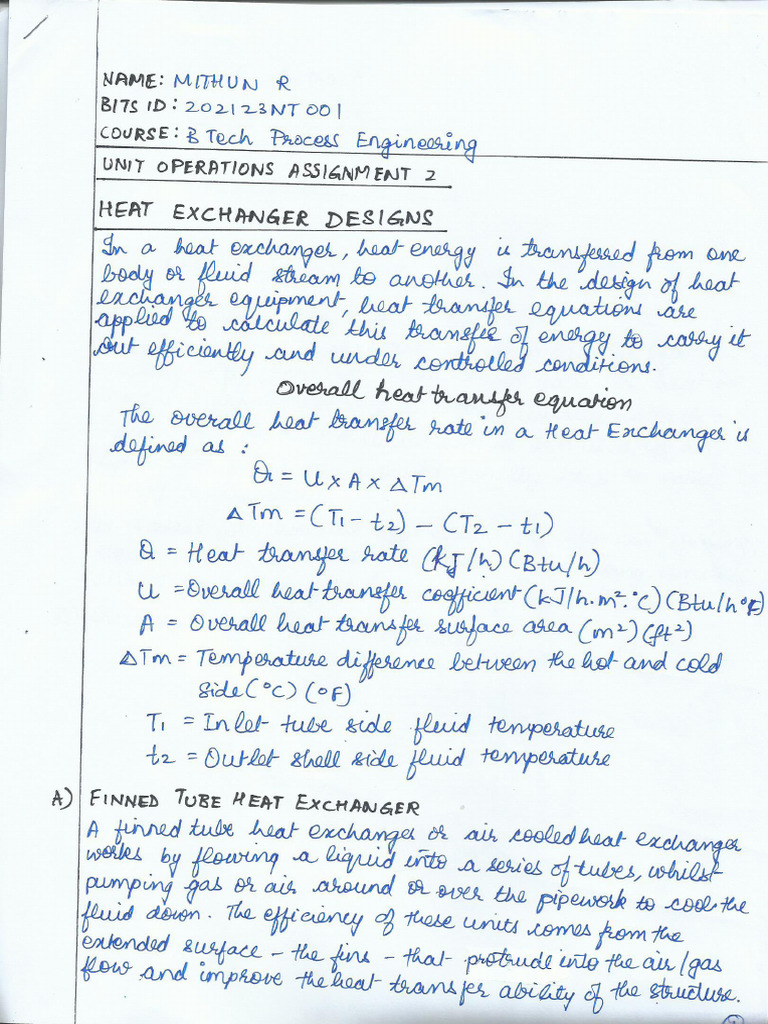 NAME: MITHUN R
BITS ID: 202123NT001
COURSE: B Tech Process Engineering
UNIT OPERATIONS ASSIGNMENT 2
HEAT EXCHANGER DESIGNS
In a heat exchanger, heat energy is transferred from one
body or fluid stream to another. In the design of heat
exchanger equipment, heat transfer equations are
applied to calculate this transfer of energy to carry it
out efficiently and under controlled conditions.
Overall heat transfer equation
The overall heat transfer rate in a Heat Exchanger is
defined as :
Q = U x A x ΔTm
ΔTm = (T1 - t2) - (T2 - t1)
Q = Heat transfer rate (kJ/h) (Btu/h)
U = Overall heat transfer coefficient (kJ/h.m².°C) (Btu/h°F)
A = Overall heat transfer surface area (m²) (ft²)
ΔTm = Temperature difference between the hot and cold
side (°C) (°F)
T1 = Inlet tube side fluid temperature
t2 = Outlet shell side fluid temperature
A) FINNED TUBE HEAT EXCHANGER
A finned tube heat exchanger or air cooled heat exchanger
works by flowing a liquid into a series of tubes, whilst
pumping gas or air around or over the pipework to cool the
fluid down. The efficiency of these units comes from the
extended surface - the fins - that protrude into the air/gas
flow and improve the heat transfer ability of the structure.